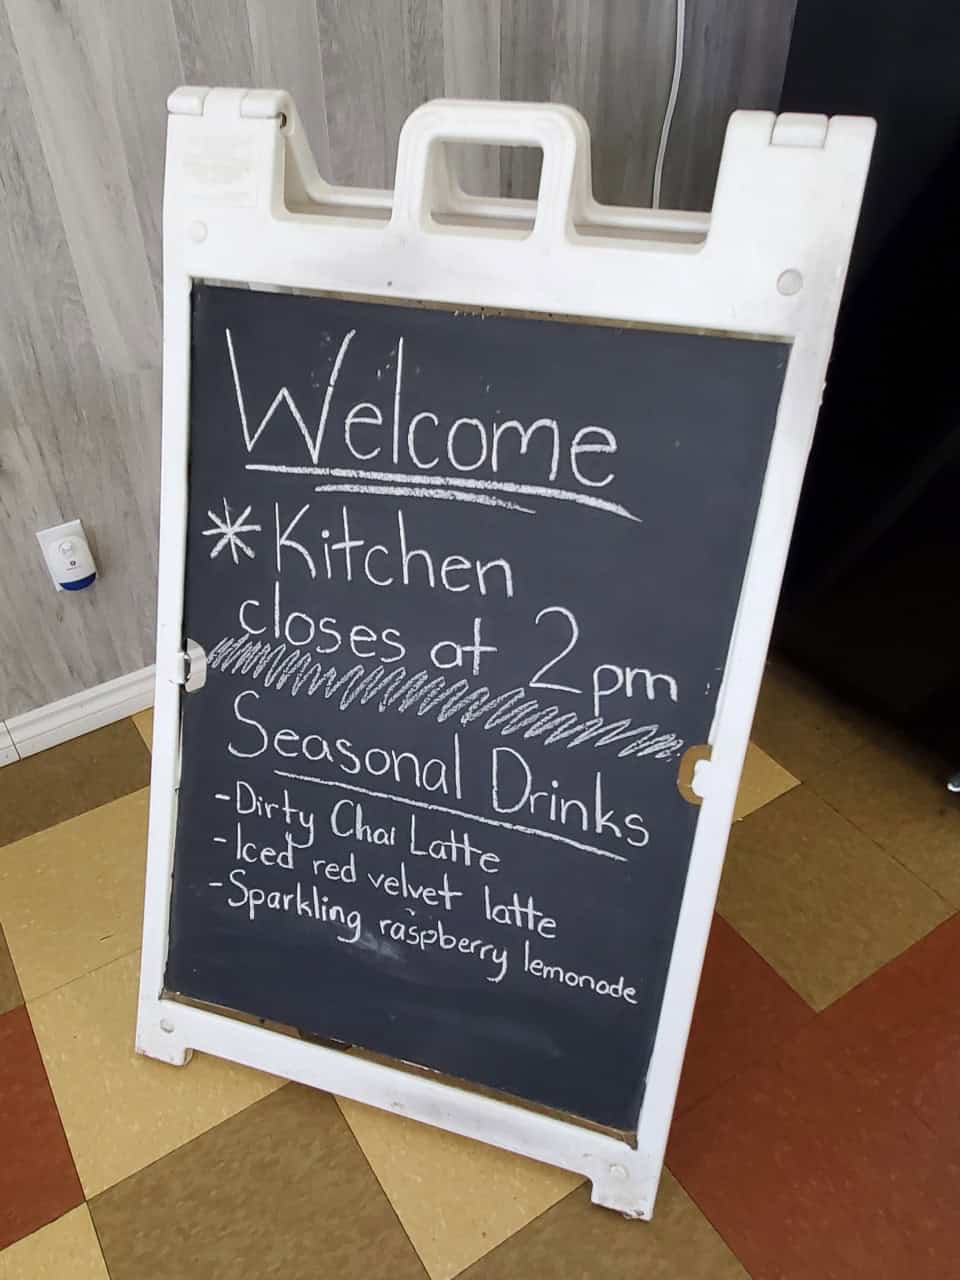 Welcome
*Kitchen
closes at 2pm
Seasonal Drinks
-Dirty Chai Latte
-Iced red velvet latte
-Sparkling raspberry lemonade